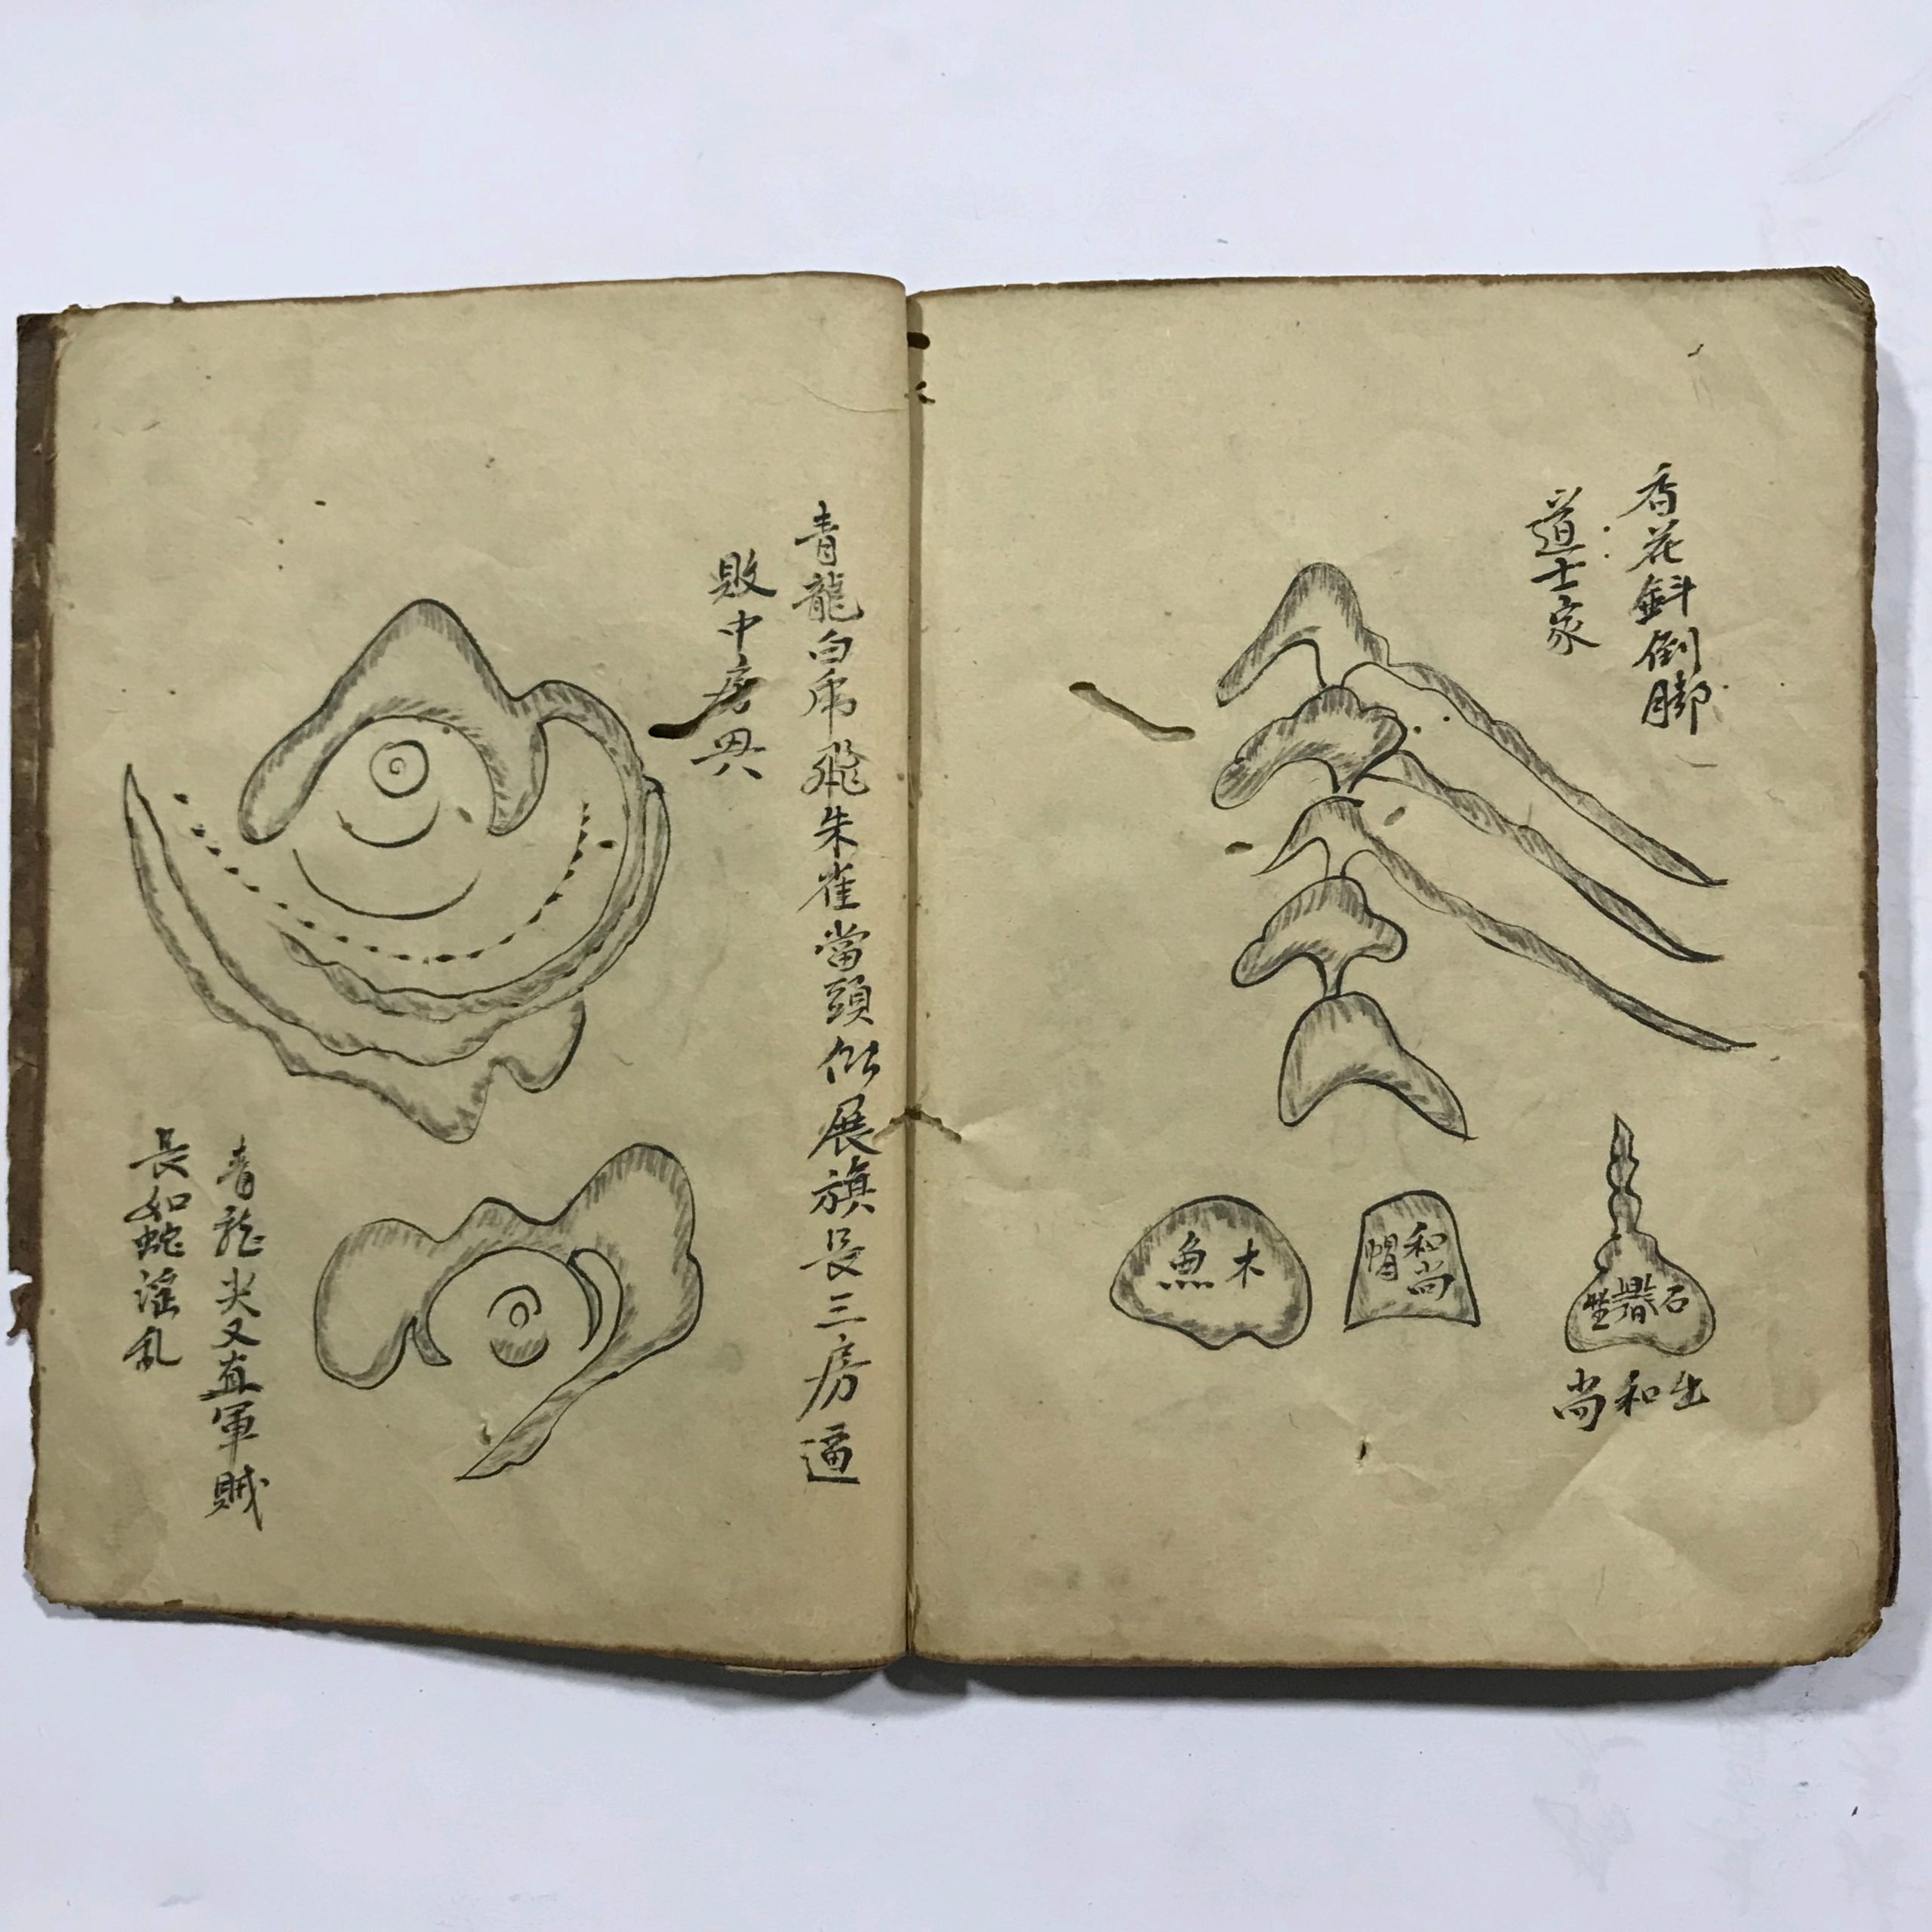 香花斜倒脚
道士家
石
曡
坐
出和尚
和尚
帽
木魚
青龍白虎飛朱雀當頭似展旗長三房逼
敗中房畧
青龍尖又直軍賊
長如蛇淫亂